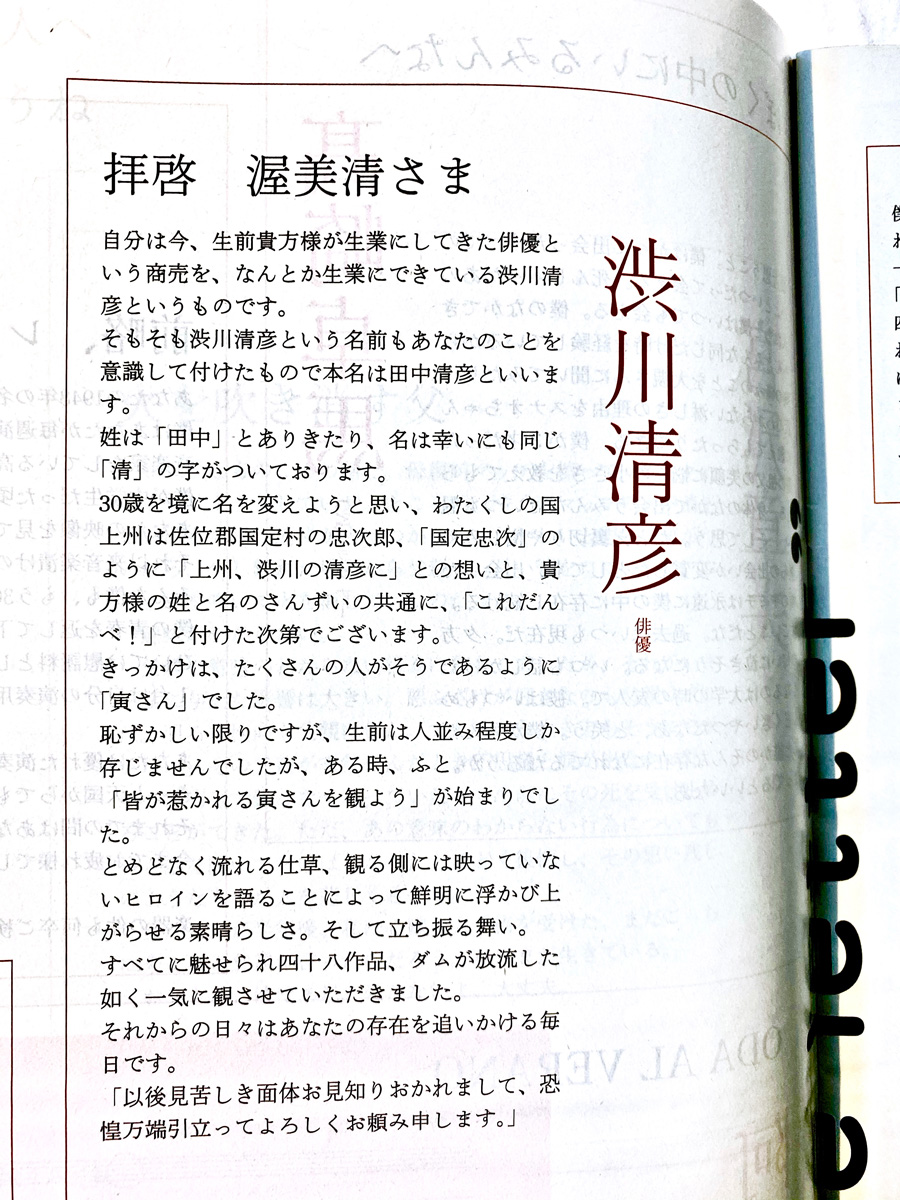 拝啓　渥美清さま
渋川清彦
俳優
自分は今、生前貴方様が生業にしてきた俳優と
いう商売を、なんとか生業にできている渋川清
彦というものです。
そもそも渋川清彦という名前もあなたのことを
意識して付けたもので本名は田中清彦といいま
す。
姓は「田中」とありきたり、名は幸いにも同じ
「清」の字がついております。
30歳を境に名を変えようと思い、わたくしの国
上州は佐位郡国定村の忠次郎、「国定忠次」の
ように「上州、渋川の清彦に」との想いと、貴
方様の姓と名のさんずいの共通に、「これだん
べ！」と付けた次第でございます。
きっかけは、たくさんの人がそうであるように
「寅さん」でした。
恥ずかしい限りですが、生前は人並み程度しか
存じませんでしたが、ある時、ふと。
「皆が惹かれる寅さんを観よう」が始まりでし
た。
とめどなく流れる仕草、観る側には映っていな
いヒロインを語ることによって鮮明に浮かび上
がらせる素晴らしさ。そして立ち振る舞い。
すべてに魅せられ四十八作品、ダムが放流した
如く一気に観させていただきました。
それからの日々はあなたの存在を追いかける毎
日です。
「以後見苦しき面体お見知りおかれまして、恐
惶万端引立ってよろしくお頼み申します。」